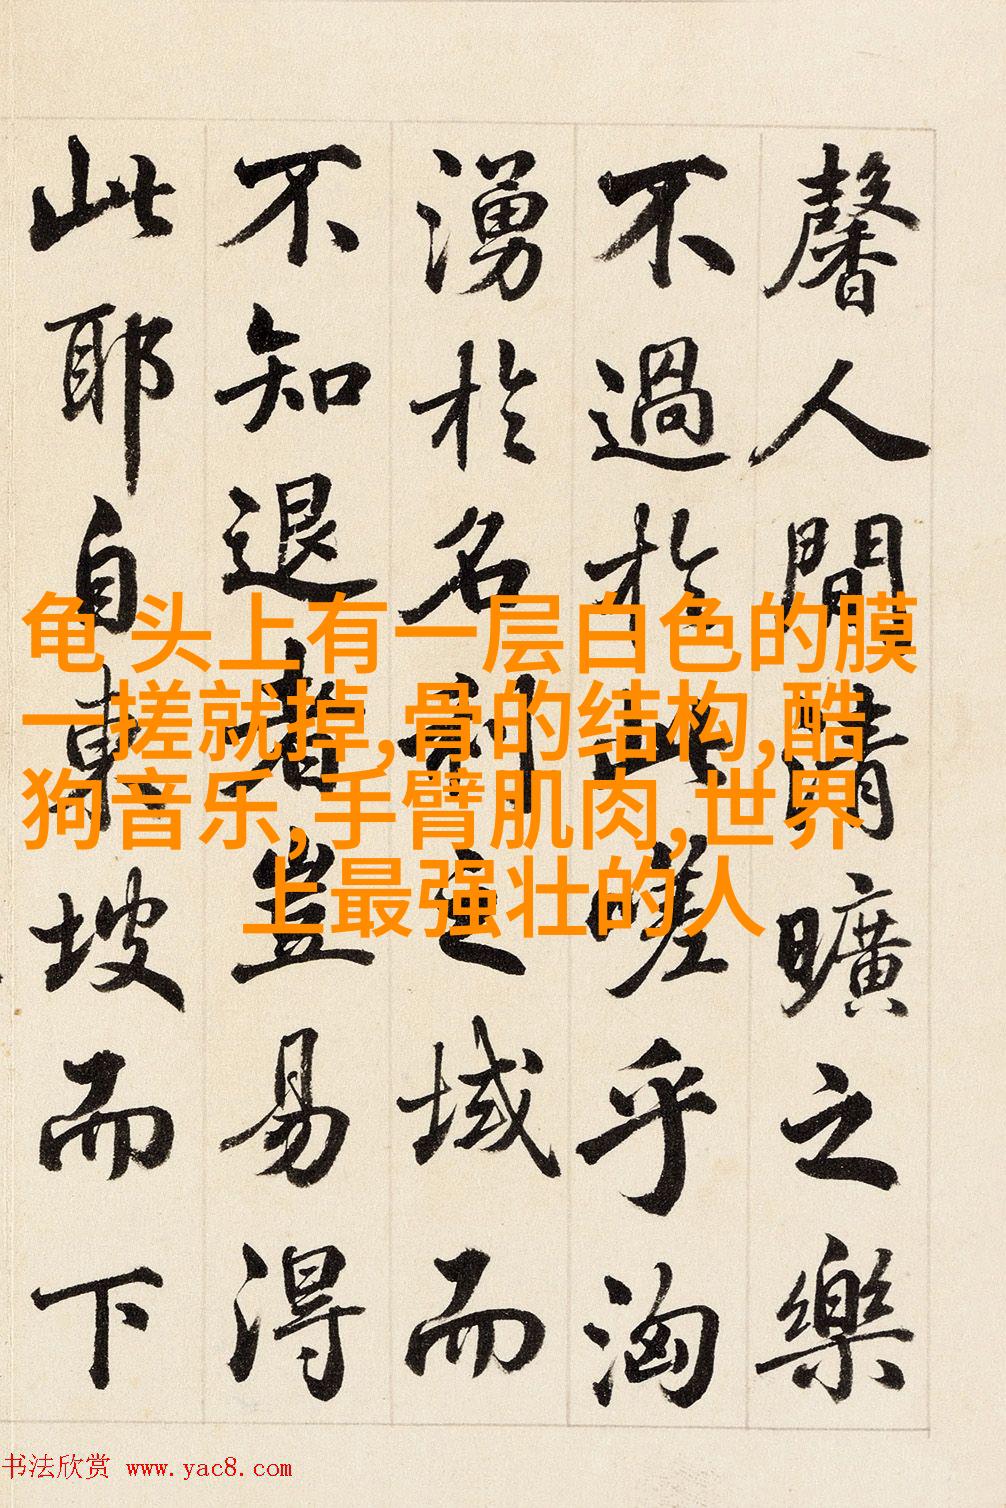 馨人間清曠之樂
不過於此嗟乎洶
湧於名利之域而
不知退者豈易得
此耶自東坡而下
龟 头上有一层白色的膜
一搓就掉,骨的结构,酷
狗音乐,手臂肌肉,世界
上最强壮的人
书法欣赏 www.yac8.com